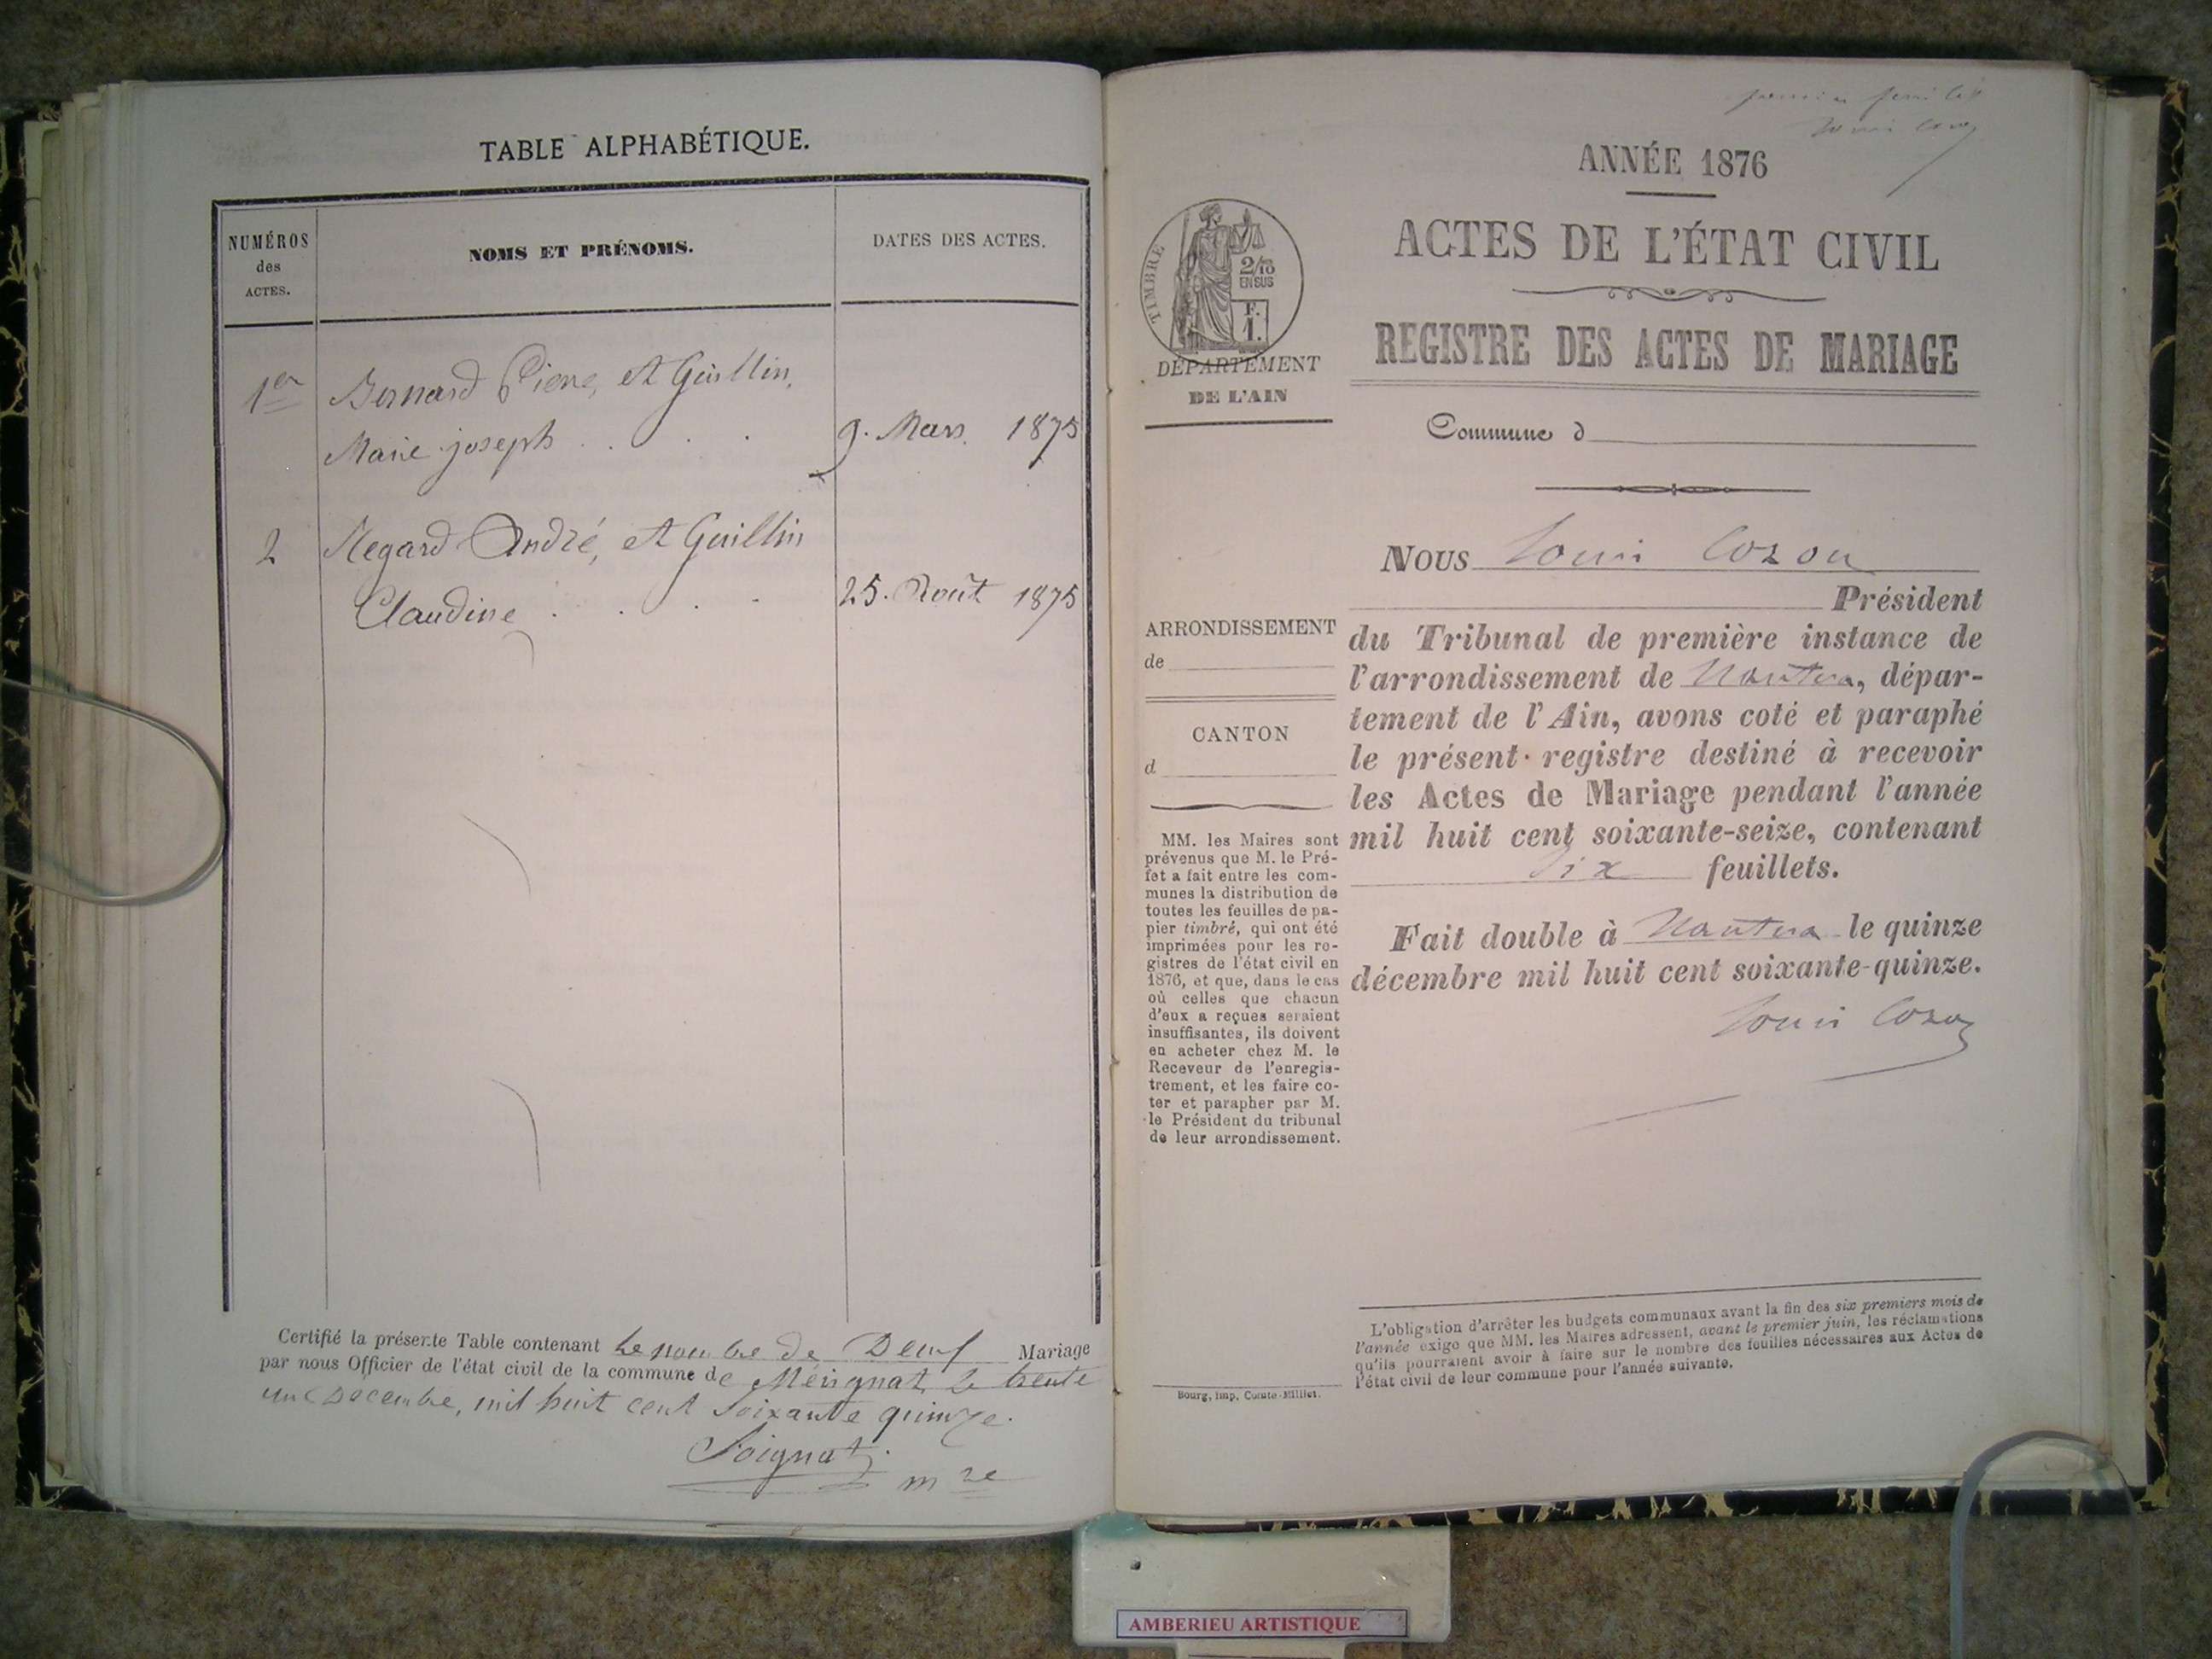 TABLE ALPHABÉTIQUE.
NUMÉROS
des
ACTES.
NOMS ET PRÉNOMS.
DATES DES ACTES.
1er Bernard Pierre, et Guillin,
Marie joseph . . . 9. Mars. 1875
2 Regard André, et Guillin
Claudine . . . . 25. Août 1875
Certifié la présente Table contenant le nombre de Deux Mariage
par nous Officier de l'état civil de la commune de Mérignat le trente
une Décembre, mil huit cent soixante quinze.
Soignat
mre
premier feuillet
Louis Cozon
ANNÉE 1876
ACTES DE L'ÉTAT CIVIL
REGISTRE DES ACTES DE MARIAGE
TIMBRE
2/10
EN SUS
F.
1.
DÉPARTEMENT
DE L'AIN
Commune d
ARRONDISSEMENT
de
CANTON
d
MM. les Maires sont
prévenus que M. le Pré-
fet a fait entre les com-
munes la distribution de
toutes les feuilles de pa-
pier timbré, qui ont été
imprimées pour les re-
gistres de l'état civil en
1876, et que, dans le cas
où celles que chacun
d'eux a reçues seraient
insuffisantes, ils doivent
en acheter chez M. le
Receveur de l'enregis-
trement, et les faire co-
ter et parapher par M.
le Président du tribunal
de leur arrondissement.
Bourg, imp. Comte-Milliet.
NOUS Louis Cozon
Président
du Tribunal de première instance de
l'arrondissement de Nantua, dépar-
tement de l'Ain, avons coté et paraphé
le présent registre destiné à recevoir
les Actes de Mariage pendant l'année
mil huit cent soixante-seize, contenant
feuillets.
Fait double à Nantua le quinze
décembre mil huit cent soixante-quinze.
Louis Cozon
L'obligation d'arrêter les budgets communaux avant la fin des six premiers mois de
l'année exige que MM. les Maires adressent, avant le premier juin, les réclamations
qu'ils pourraient avoir à faire sur le nombre des feuilles nécessaires aux Actes de
l'état civil de leur commune pour l'année suivante.
AMBERIEU ARTISTIQUE